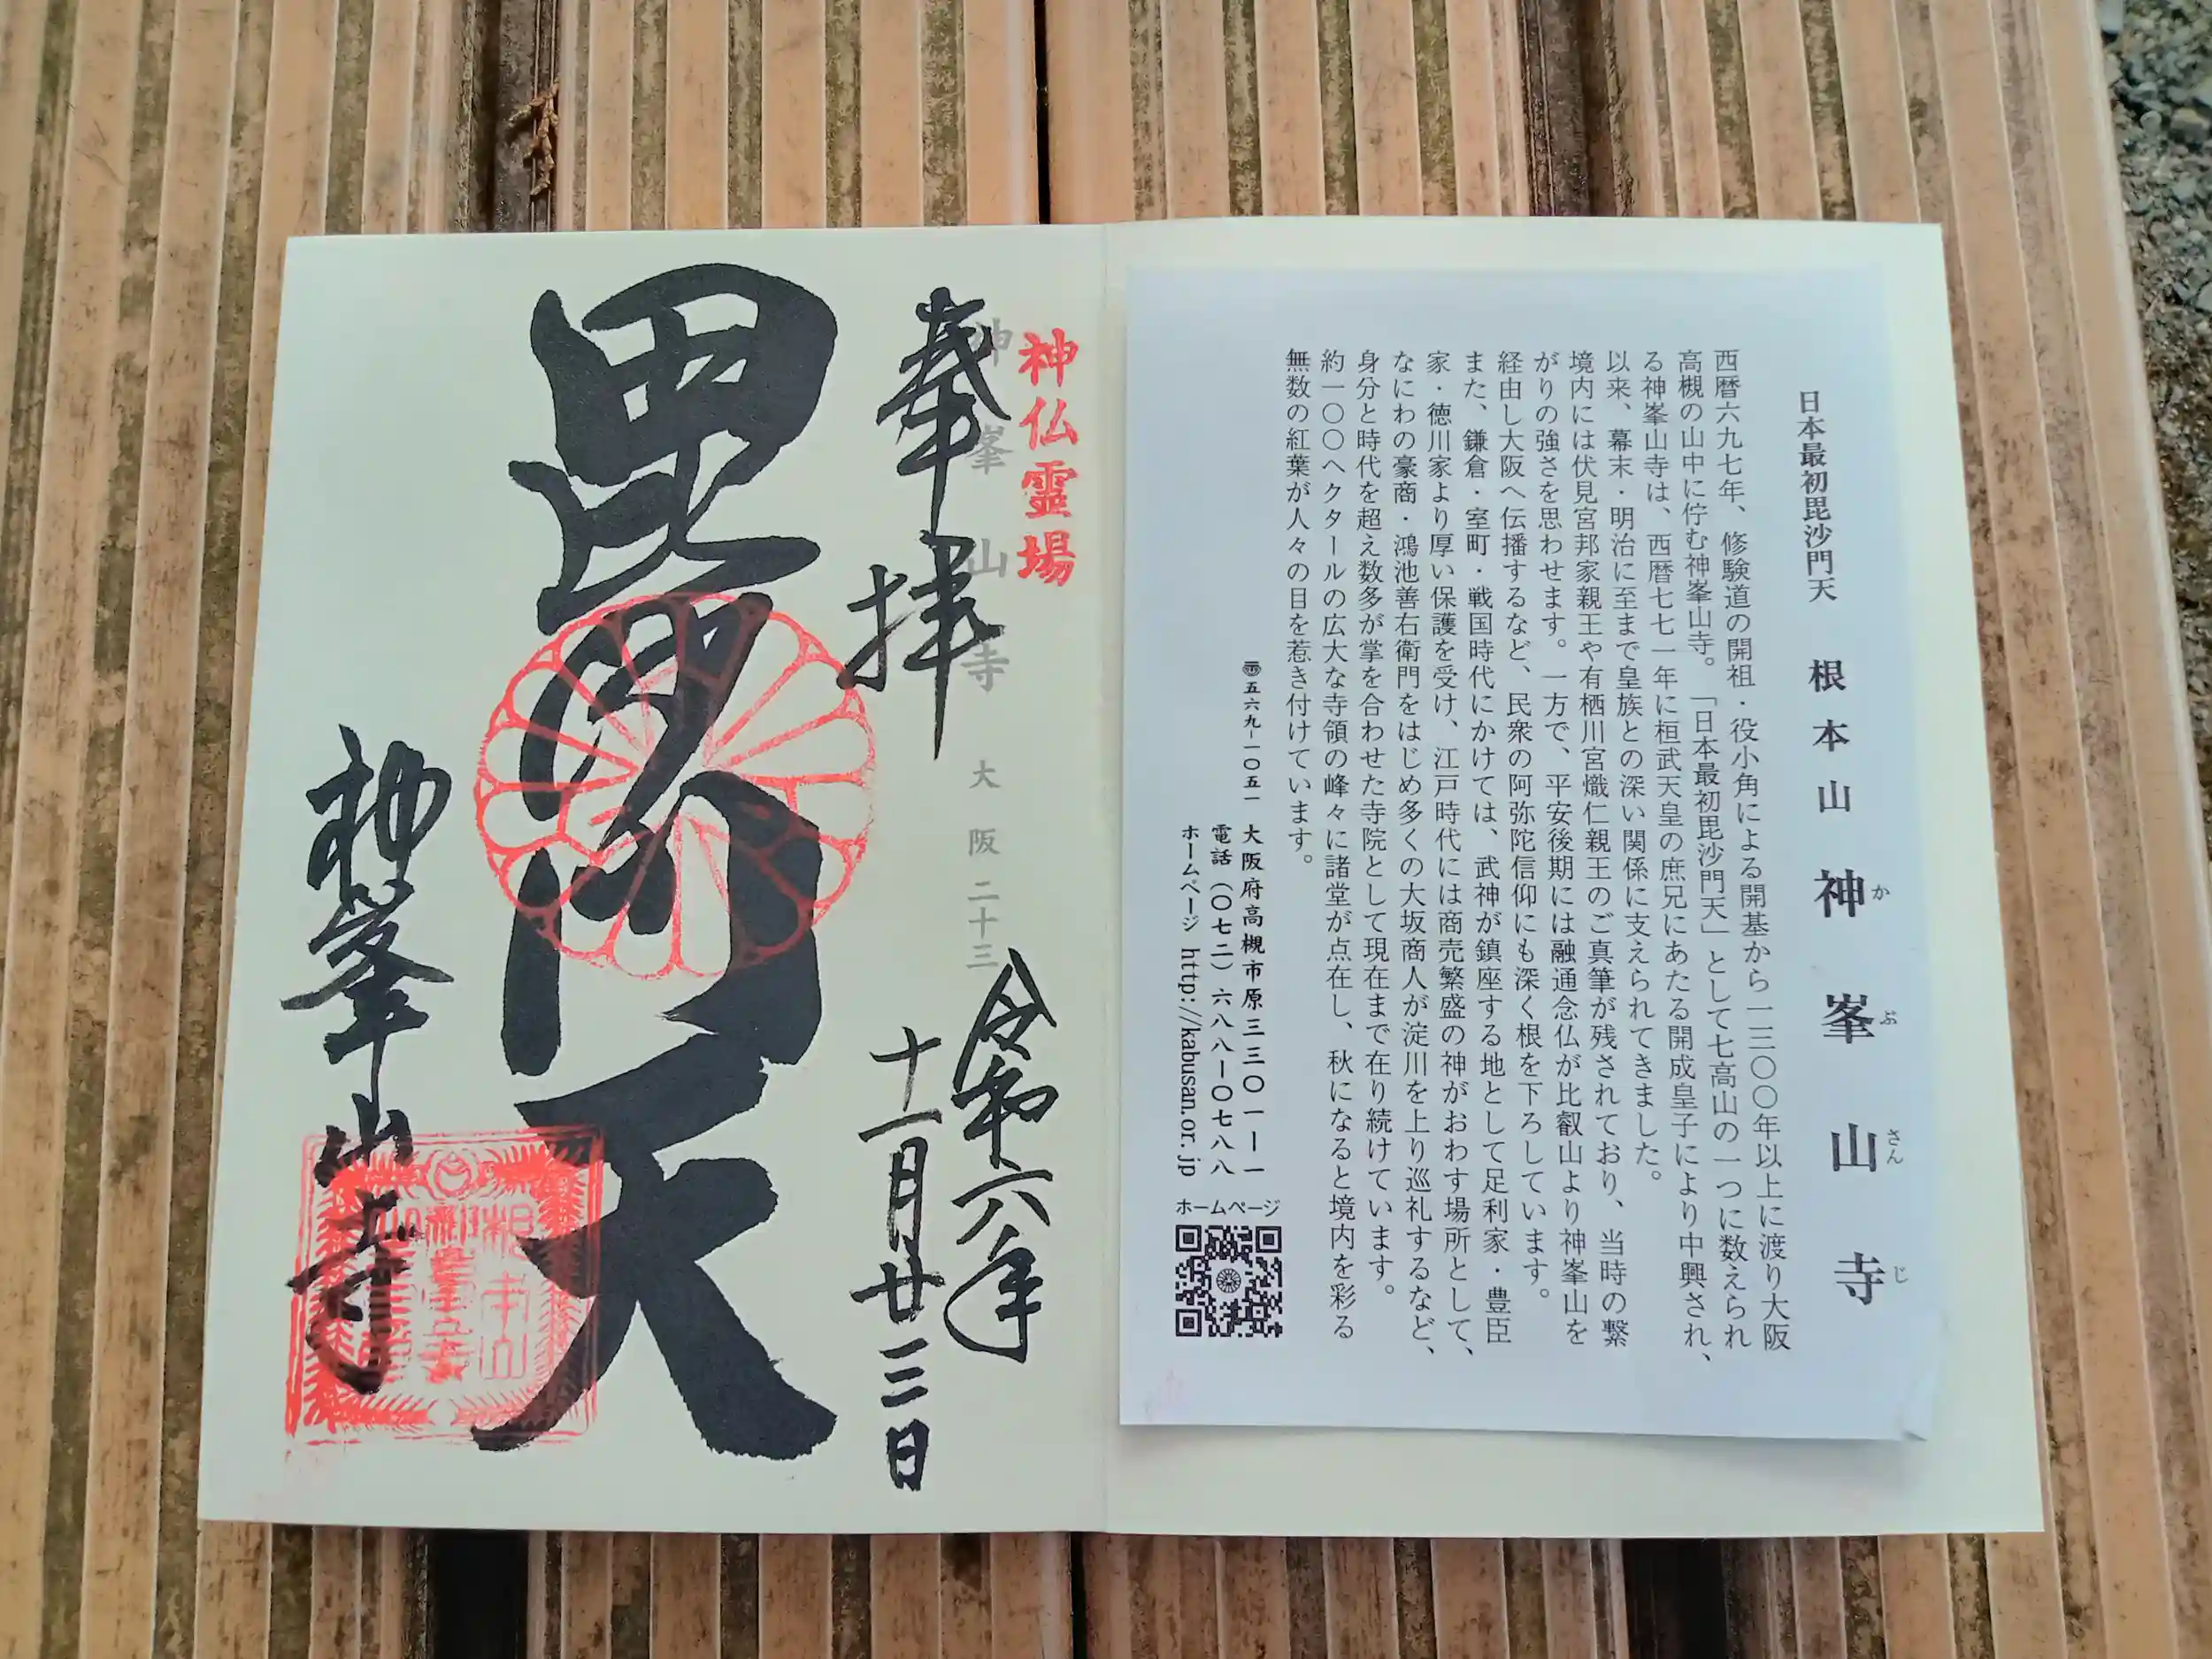 日本最初毘沙門天 根本山 神峯山寺
か ぶ さん じ
西暦六九七年、修験道の開祖・役小角による開基から一三〇〇年以上に渡り大阪
高槻の山中に佇む神峯山寺。「日本最初毘沙門天」として七高山の一つに数えられ
る神峯山寺は、西暦七七一年に桓武天皇の庶兄にあたる開成皇子により中興され、
以来、幕末・明治に至まで皇族との深い関係に支えられてきました。
境内には伏見宮邦家親王や有栖川宮熾仁親王のご真筆が残されており、当時の繋
がりの強さを思わせます。一方で、平安後期には融通念仏が比叡山より神峯山を
経由し大阪へ伝播するなど、民衆の阿弥陀信仰にも深く根を下ろしています。
また、鎌倉・室町・戦国時代にかけては、武神が鎮座する地として足利家・豊臣
家・徳川家より厚い保護を受け、江戸時代には商売繁盛の神がおわす場所として、
なにわの豪商・鴻池善右衛門をはじめ多くの大坂商人が淀川を上り巡礼するなど、
身分と時代を超え数多が掌を合わせた寺院として現在まで在り続けています。
約一〇〇ヘクタールの広大な寺領の峰々に諸堂が点在し、秋になると境内を彩る
無数の紅葉が人々の目を惹き付けています。
〒五六九-一〇五一 大阪府高槻市原三三〇一-一
電話(〇七二)六八八-〇七八八
ホームページ http://kabusan.or.jp
ホームページ
神仏霊場
神峯山寺 大阪 二十三
奉拝
令和六年
十一月廿三日
毘沙門天
神峯山寺